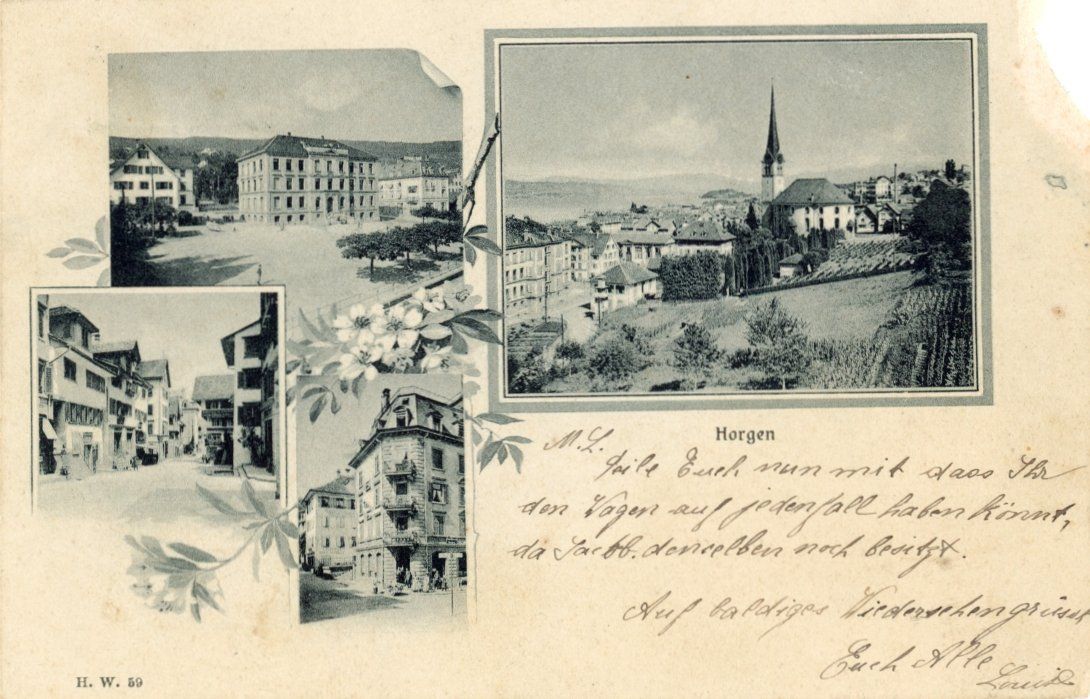 Horgen
M. L.
Teile Euch nun mit dass Ihr
den Wagen auf jedenfall haben könnt,
da denselben noch besitzt.
Auf baldiges Wiedersehen grüsst
Euch Alle
H. W. 59